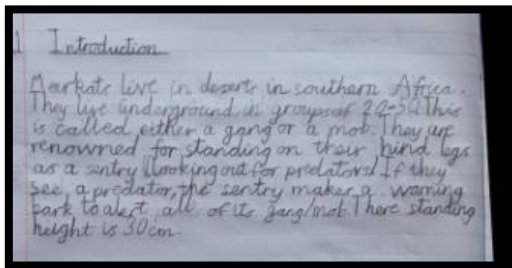 1 Introduction
Mearkats live in deserts in southern Africa.
They live underground, in groups of 22-50. This
is called either a gang or a mob. They are
renowned for standing on their hind legs
as a sentry (looking out for predators) If they
see a predator, the sentry makes a warning
bark to alert all of its gang/mob. There standing
height is 30cm.